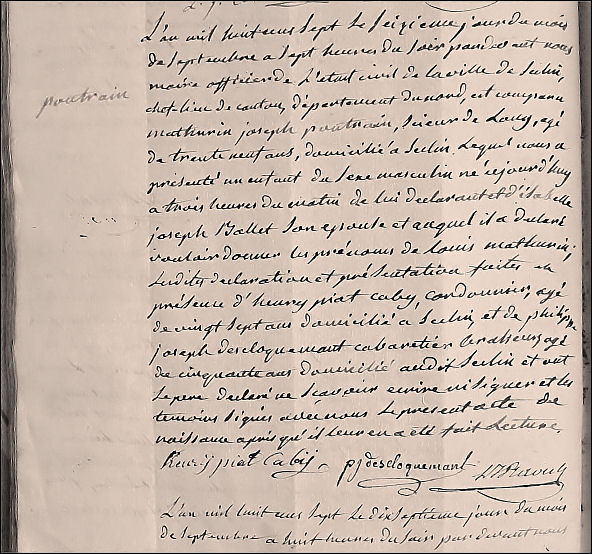 L'an mil huit cens sept le seizieme jour du mois
de septembre a sept heures du soir pardevant nous
maire officier de L'etat civil de la ville de Seclin,
chef-lieu de canton, département du nord, est comparu
poutrain
mathurin joseph poutrain, Scieur de Long, agé
de trente neuf ans, domicilié a Seclin Lequel nous a
présenté un enfant du Sexe masculin né cejourd'huy
a trois heures du matin de lui declarant et d'isabelle
joseph Ballet Son epouse et auquel il a declaré
vouloir donner les prénoms de Louis mathurin;
Lesdites declaration et présentation faites en
présence d'henry piat caby, cordonnier, agé
de vingt sept ans domicilié a Seclin, et de philippe
joseph descloquemant cabaretier brasseur agé
de cinquante ans domicilié audit Seclin et ont
Le pere declaré ne Scavoir ecrire ni Signer et les
temoins Signés avec nous Le present acte de
naissance après qu'il leur en a eté fait Lecture,
henrij piat Cabij - pj descloquemant
L'an mil huit cens sept le dix septieme jour du mois
de septembre a huit heures du soir pardevant nous